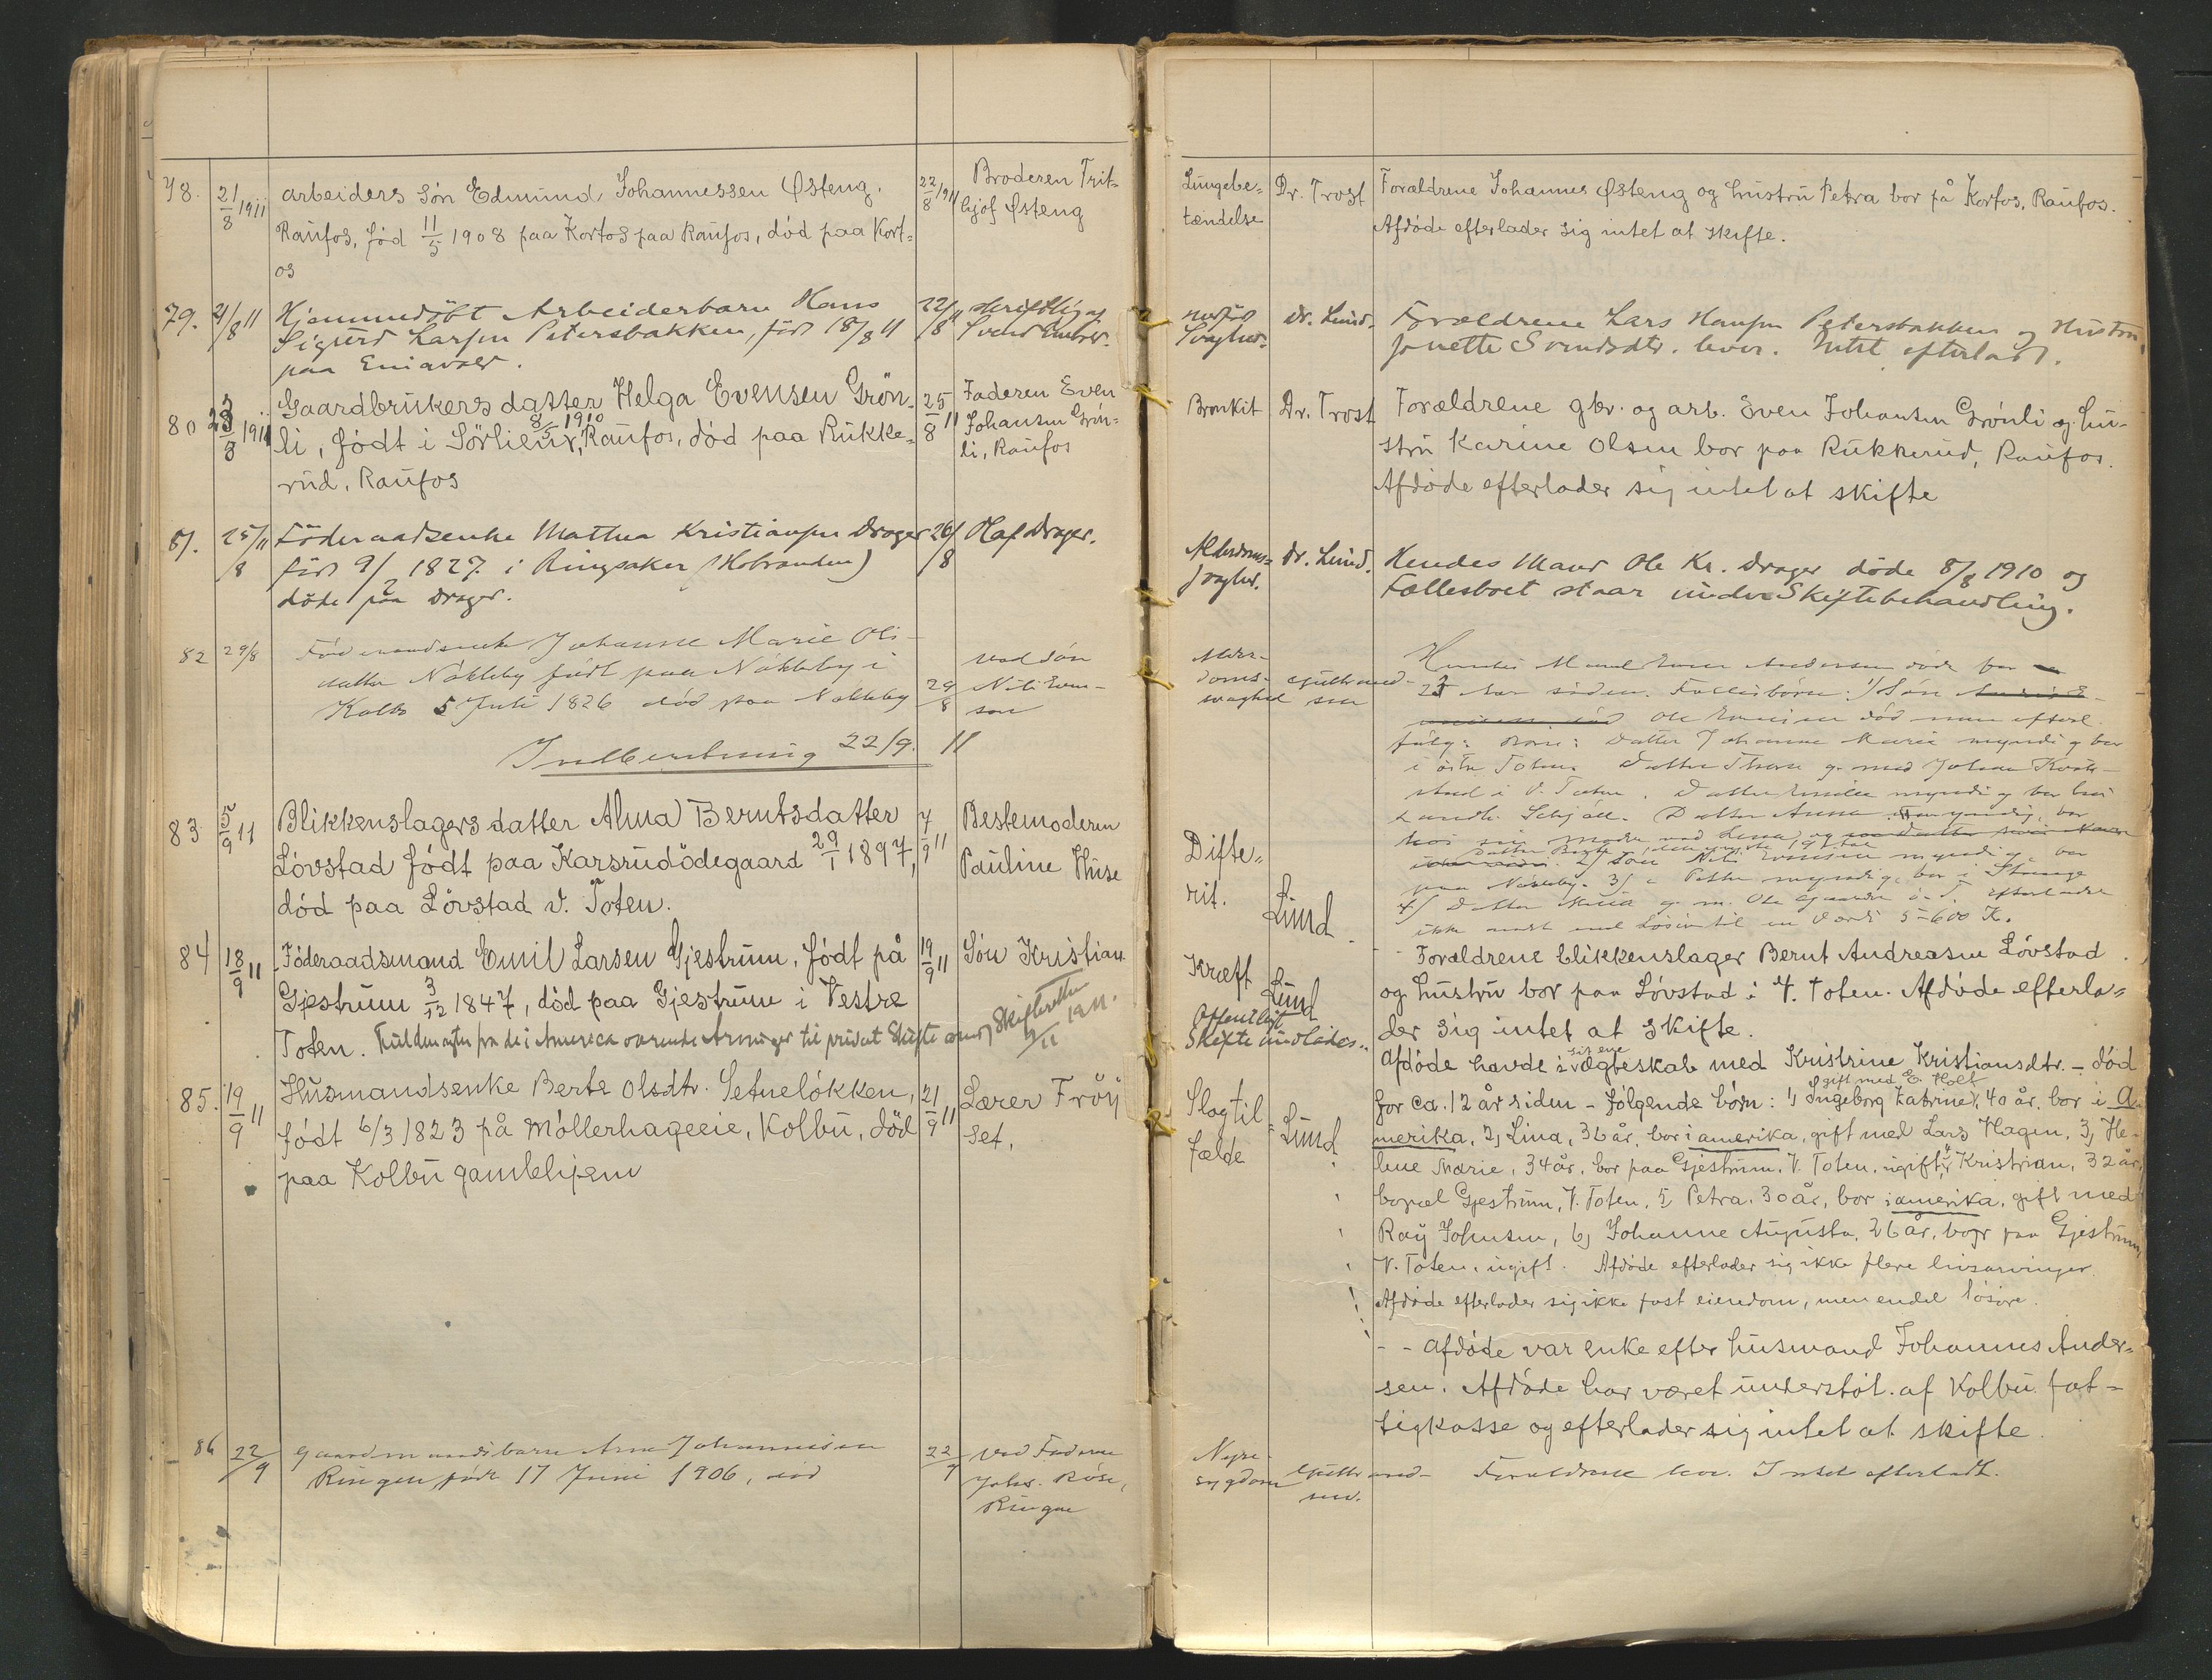 78.
21/8 1911
arbeiders søn Edmund, Johannessen Østeng.
Raufos, fød 11/5 1908 paa Kortos paa Raufos, død paa Kort-
os
22/8 1911
Broderen Frit-
hjof Østeng
Lungebe-
tændelse
Dr. Trost
Forældrene Johannes Østeng og hustru Petra bor på Kortos, Raufos.
Afdøde efterlader sig intet at skifte.
79.
21/8 11
Hjemmedøbt Arbeiderbarn Hans
Sigurd Larsen Petersbakken, født 18/8 11
paa
22/8 11
skriftlig af
medfød
Svaghed.
Dr. Lund.
Forældrene Lars Hansen Petersbakken og Hustru
Jonette Svendsdtr. lever. Intet efterladt.
80
23/8 1911
Gaardbrukers datter Helga Evensen Grøn-
li, født i Sørlien 8/5 1910, Raufos, død paa Rukke-
rud, Raufos
25/8 11
Faderen Even
Johansen Grøn-
li, Raufos
Bronkit
Dr. Trost
Forældrene gbr. og arb. Even Johansen Grønli og hu-
stru Karine Olsen bor paa Rukkerud, Raufos.
Afdøde efterlader sig intet at skifte
81.
25/8 11
Føderaadsenke Mathea Kristiansen Drager
født 9/2 1827 i Ringsaker (Hobranden)
døde paa Drager.
26/8
Olaf Drager.
Alderdoms-
svaghed.
Dr. Lund.
Hendes Mand Ole Kr. Drager døde 8/8 1910 og
Fællesboet staar under Skiftebehandling.
82
29/8
Føderaadsenke Johanne Marie Ols-
datter Nøkleby født paa Nøkleby i
Kolbu 5 Juli 1826 død paa Nøkleby
29/8
ved søn
Nils Even-
sen
Alder-
doms-
svaghed
Gulbrand-
sen
Hendes Mand Even Andersen døde for
23 Aar siden. Fællesbørn: 1/ Søn
Ole Evensen død men efterl.
følg: Børn: Datter Johanne Marie myndig bor
i østre Toten. Datter Therese g. med Johan Kval-
stad i V. Toten. Datter Emilie myndig bor hos
Landh. Schjøll. Datter Anna myndig, bor
hos sin moder ved Lena og
2/ Søn Nils Evensen myndig bor
paa Nøkleby. 3/ Petter myndig, bor i Stange
4/ Datter g. m. Ole Gaarder ø. T. efterlader
ikke andet end Løsøre til en Værdi 5-600 K.
Indberetning 22/9. 11
83
5/9 11
Blikkenslagers datter Alma Berntsdatter
Løvstad født paa Karsrudødegaard 29/1 1897,
død paa Løvstad V. Toten.
7/9 11
Bestemoderen
Pauline Huse
Difte-
rit.
Lund
Forældrene blikkenslager Bernt Andreasen Løvstad
og hustru bor paa Løvstad i V. Toten. Afdøde efterla-
der sig intet at skifte.
84
18/9 11
Føderaadsmand Emil Larsen Gjestrum, født på
Gjestrum 3/12 1847, død paa Gjestrum i Vestre
Toten. Fuldmagter fra de i Amerika værende Arvinger til privat Skifte
19/9 11
Søn Kristian
Kræft
Lund
Offentligt
Skifte undlades.
Afdøde havde i sit ene ægteskab med Kristine Kristiansdtr. - død
for ca. 12 år siden - følgende børn: 1, Ingeborg Katrine, gift med E. Holt 40 år. bor i A-
merika, 2, Lina, 36 år, bor i amerika, gift med Lars Hagen, 3, He-
line Marie, 34 år, bor paa Gjestrum, V. Toten, ugift, 4, Kristian, 32 år,
bopæl Gjestrum, V. Toten, 5, Petra, 30 år, bor i amerika, gift med
Ray Johnsen, 6, Johanne Augusta, 26 år, bor paa Gjestrum,
V. Toten, ugift. Afdøde efterlader sig ikke flere livsarvinger.
Afdøde efterlader sig ikke fast eiendom, men endel løsøre.
85.
19/9 11
Husmandsenke Berte Olsdtr. Setueløkken,
født 6/3 1823 på Møllerhageeie, Kolbu, død
paa Kolbu gamlehjem
21/9 11
Lærer Frøy
set,
Slagtil-
fælde
Lund
- - Afdøde var enke efter husmand Johannes Ander-
sen. Afdøde har været understøt. af Kolbu fat-
tigkasse og efterlader sig intet at skifte.
86
22/9
Gaardmandsbarn Arne Johannesen
Ringen født 17 Juni 1906, død
22/9
ved Faderen
Johs. Røse,
Ringen
Nyre-
sygdom
Gulbrand-
sen.
Forældrene lever. Intet efterladt.